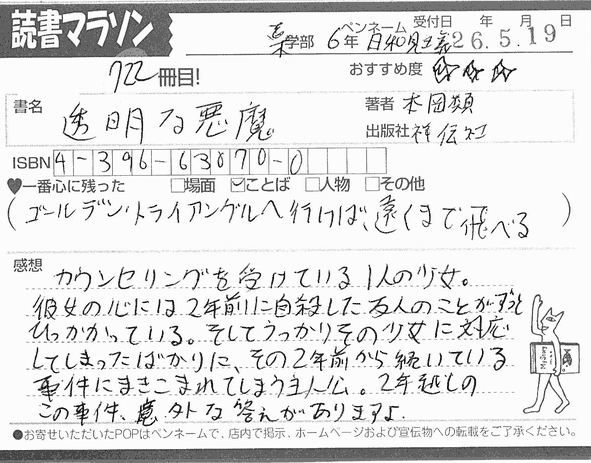 読書マラソン
薬学部 6年 ペンネーム 日和見主義 受付日 26年5月19日
722冊目!
おすすめ度 ☆☆☆
書名 透明な悪魔
著者 本岡類
出版社 祥伝社
ISBN 4-396-63070-0
♥一番心に残った □場面 ☑ことば □人物 □その他
(ゴールデン・トライアングルへ行けば、遠くまで飛べる)
感想 カウンセリングを受けている1人の少女。
彼女の心には2年前に自殺した友人のことがずっと
ひっかかっている。そしてうっかりその少女に対応
してしまったばかりに、その2年前から続いている
事件にまきこまれてしまう主人公。2年越しの
この事件、意外な答えがありますよ
●お寄せいただいたPOPはペンネームで、店内で掲示、ホームページおよび宣伝物への転載をご了承ください。